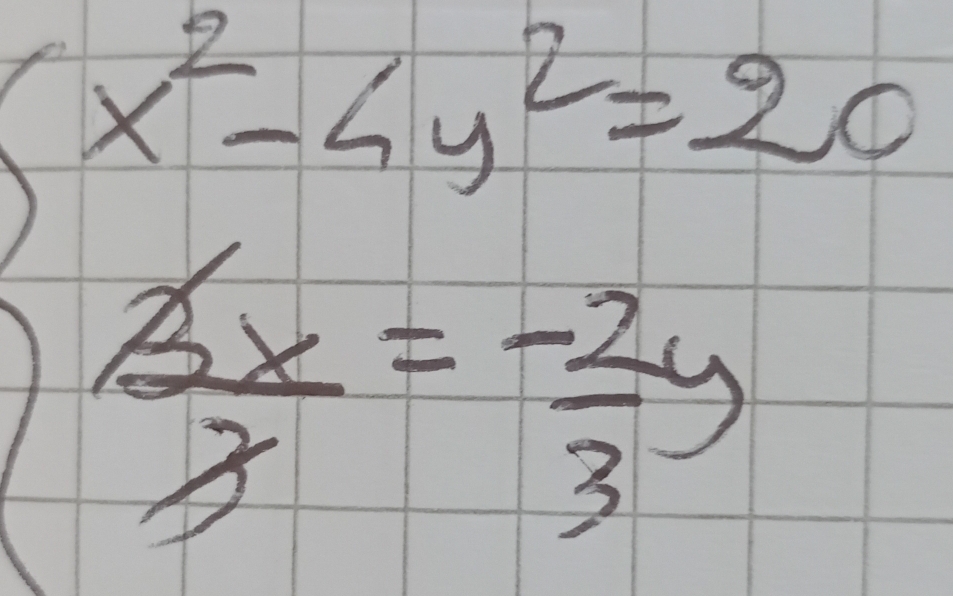 x² - 4y² = 20
3x/3 = -2/3 y